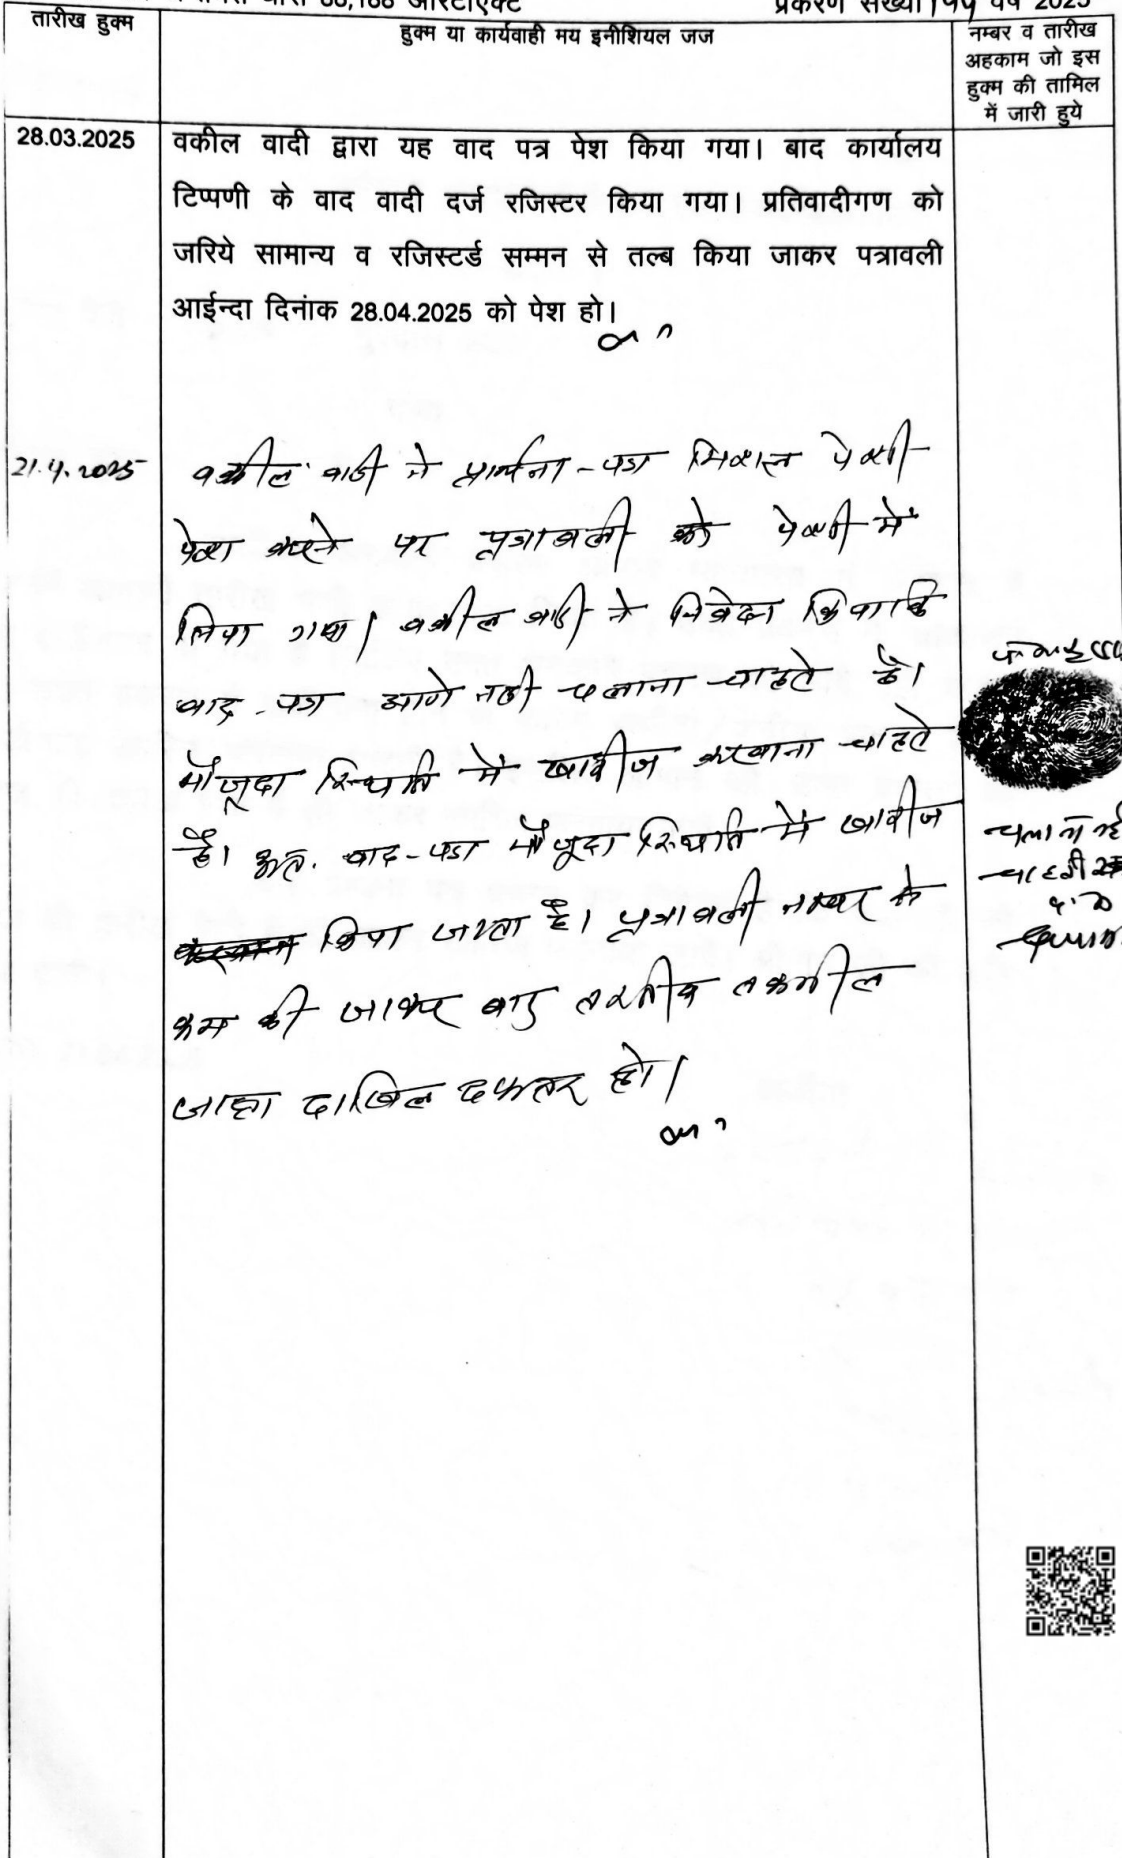 धारा 88,188 आरटीएक्ट प्रकरण संख्या 144 वर्ष 2025
तारीख हुक्म
हुक्म या कार्यवाही मय इनीशियल जज
नम्बर व तारीख
अहकाम जो इस
हुक्म की तामिल
में जारी हुये
28.03.2025
वकील वादी द्वारा यह वाद पत्र पेश किया गया। बाद कार्यालय
टिप्पणी के वाद वादी दर्ज रजिस्टर किया गया। प्रतिवादीगण को
जरिये सामान्य व रजिस्टर्ड सम्मन से तल्ब किया जाकर पत्रावली
आईन्दा दिनांक 28.04.2025 को पेश हो।
21.4.2025
वकील वादी ने प्रार्थना-पत्र मिशल पेशी
पेश करने पर पत्रावली को पेशी में
लिया गया। वकील वादी ने निवेदन किया कि
वाद-पत्र आगे नही चलाना चाहते है।
मौजूदा स्थिति में खारीज करवाना चाहते
है। अत. वाद-पत्र मौजूदा स्थिति में खारीज
किया जाता है। पत्रावली नम्बर से
कम की जाकर बाद तरतीब तकमील
जाप्ता दाखिल दफ्तर हो।
चलाना नही
चाहती